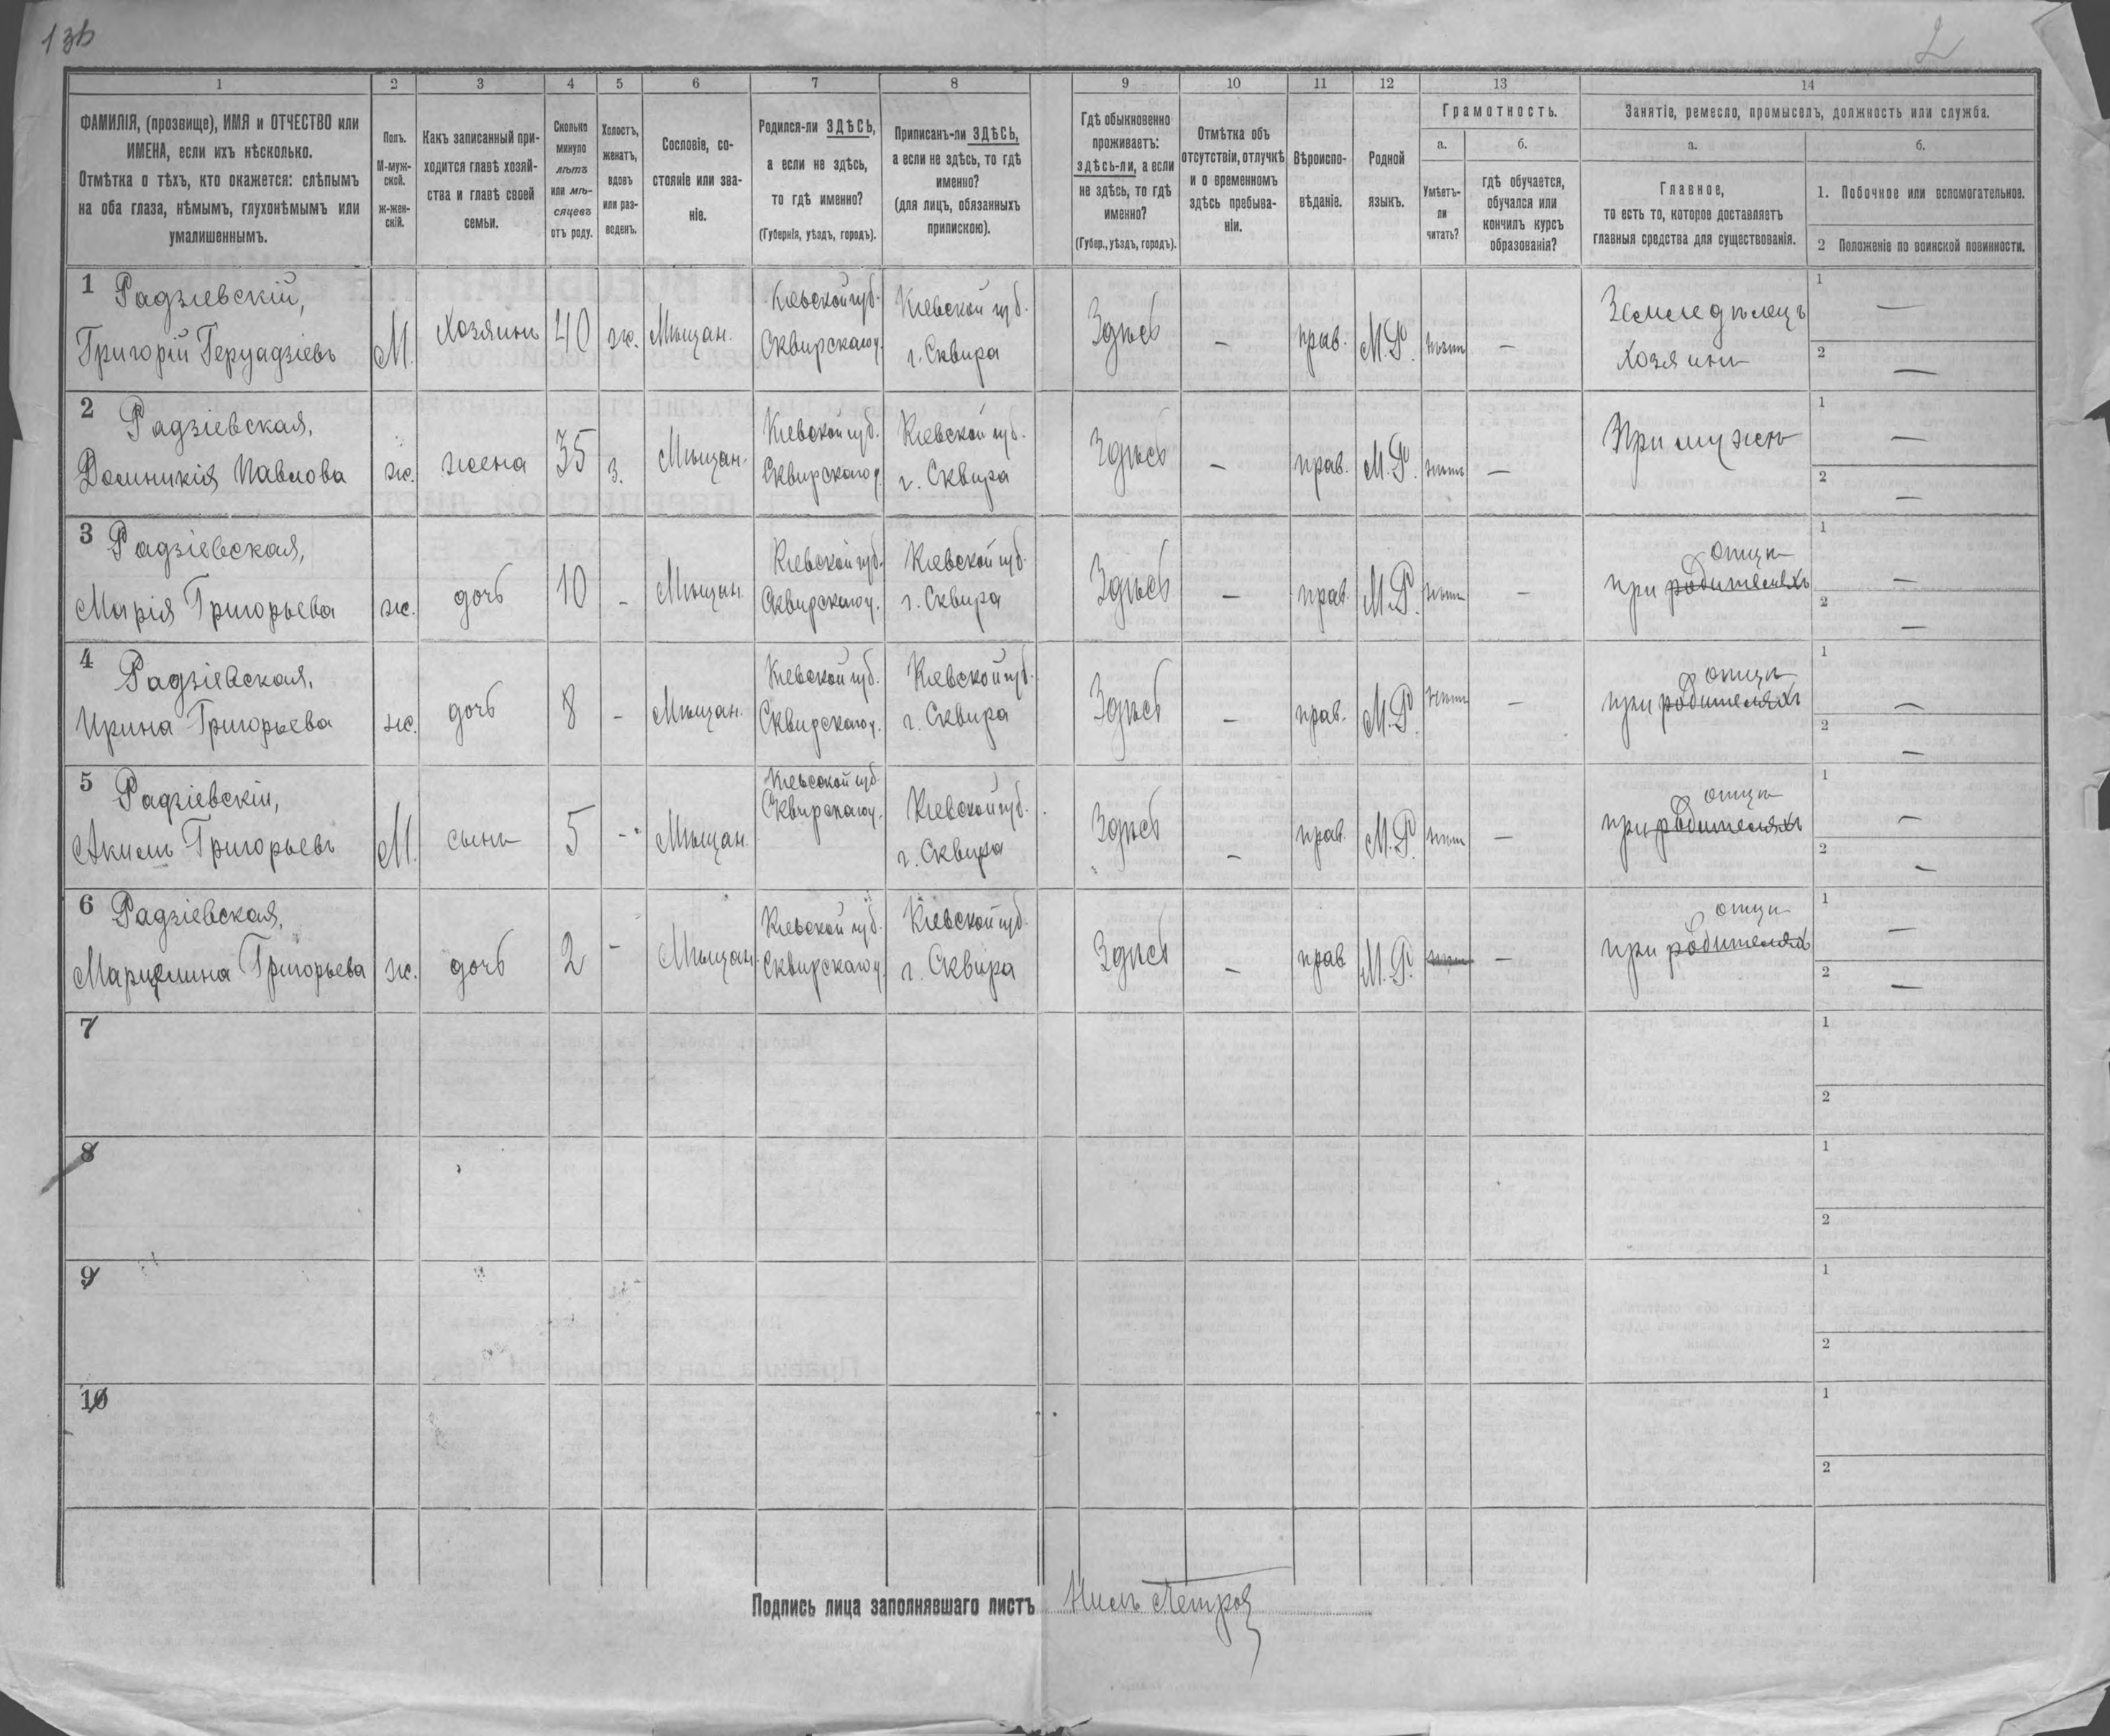 136
2
1
2
3
4
5
6
7
8
9
10
11
12
13
14
ФАМИЛІЯ, (прозвище), ИМЯ и ОТЧЕСТВО или
ИМЕНА, если ихъ нѣсколько.
Отмѣтка о тѣхъ, кто окажется: слѣпымъ
на оба глаза, нѣмымъ, глухонѣмымъ или
умалишеннымъ.
Полъ.
М-муж-
ской.
Ж-жен-
скій.
Какъ записанный при-
ходится главѣ хозяй-
ства и главѣ своей
семьи.
Сколько
минуло
лѣтъ
или мѣ-
сяцевъ
отъ роду.
Холостъ,
женатъ,
вдовъ
или раз-
веденъ.
Сословіе, со-
стояніе или зва-
ніе.
Родился-ли ЗДѢСЬ,
а если не здѣсь,
то гдѣ именно?
(Губернія, уѣздъ, городъ).
Приписанъ-ли ЗДѢСЬ,
а если не здѣсь, то гдѣ
именно?
(для лицъ, обязанныхъ
припискою).
Гдѣ обыкновенно
проживаетъ:
здѣсь-ли, а если
не здѣсь, то гдѣ
именно?
(Губер., уѣздъ, городъ).
Отмѣтка объ
отсутствіи, отлучкѣ
и о временномъ
здѣсь пребыва-
ніи.
Вѣроиспо-
вѣданіе.
Родной
языкъ.
Грамотность.
а.
Умѣетъ-
ли
читать?
б.
гдѣ обучается,
обучался или
кончилъ курсъ
образованія?
Занятіе, ремесло, промыселъ, должность или служба.
а.
Главное,
то есть то, которое доставляетъ
главныя средства для существованія.
б.
1. Побочное или вспомогательное.
2 Положеніе по воинской повинности.
1 Радзіевскій,
Григорій
М.
Хозяинъ
40
ж.
Мѣщан.
Кіевской губ.
Сквирскаго у.
Кіевской губ.
г. Сквира
Здѣсь
—
прав.
М.Р.
нѣтъ
—
Земледѣлецъ
Хозяинъ
1
—
2
—
2 Радзіевская,
Домникія Павлова
ж.
жена
35
з.
Мѣщан.
Кіевской губ.
Сквирскаго у.
Кіевской губ.
г. Сквира
Здѣсь
—
прав.
М.Р.
нѣтъ
—
При мужѣ
1
—
2
—
3 Радзіевская,
Марія Григорьева
ж.
дочь
10
-
Мѣщан.
Кіевской губ.
Сквирскаго у.
Кіевской губ.
г. Сквира
Здѣсь
—
прав.
М.Р.
нѣтъ
—
отцѣ
при родителяхъ
1
—
2
—
4 Радзіевская,
Ирина Григорьева
ж.
дочь
8
-
Мѣщан.
Кіевской губ.
Сквирскаго у.
Кіевской губ.
г. Сквира
Здѣсь
—
прав.
М.Р.
нѣтъ
—
отцѣ
при родителяхъ
1
—
2
—
5 Радзіевскій,
Акимъ Григорьевъ
М.
сынъ
5
-
Мѣщан.
Кіевской губ.
Сквирскаго у.
Кіевской губ.
г. Сквира
Здѣсь
—
прав.
М.Р.
нѣтъ
—
отцѣ
при родителяхъ
1
—
2
—
6 Радзіевская,
Марцелина Григорьева
ж.
дочь
2
-
Мѣщан.
Кіевской губ.
Сквирскаго у.
Кіевской губ.
г. Сквира
Здѣсь
—
прав.
М.Р.
нѣтъ
—
отцѣ
при родителяхъ
1
—
2
—
7
1
2
8
1
2
9
1
2
10
1
2
Подпись лица заполнявшаго листъ